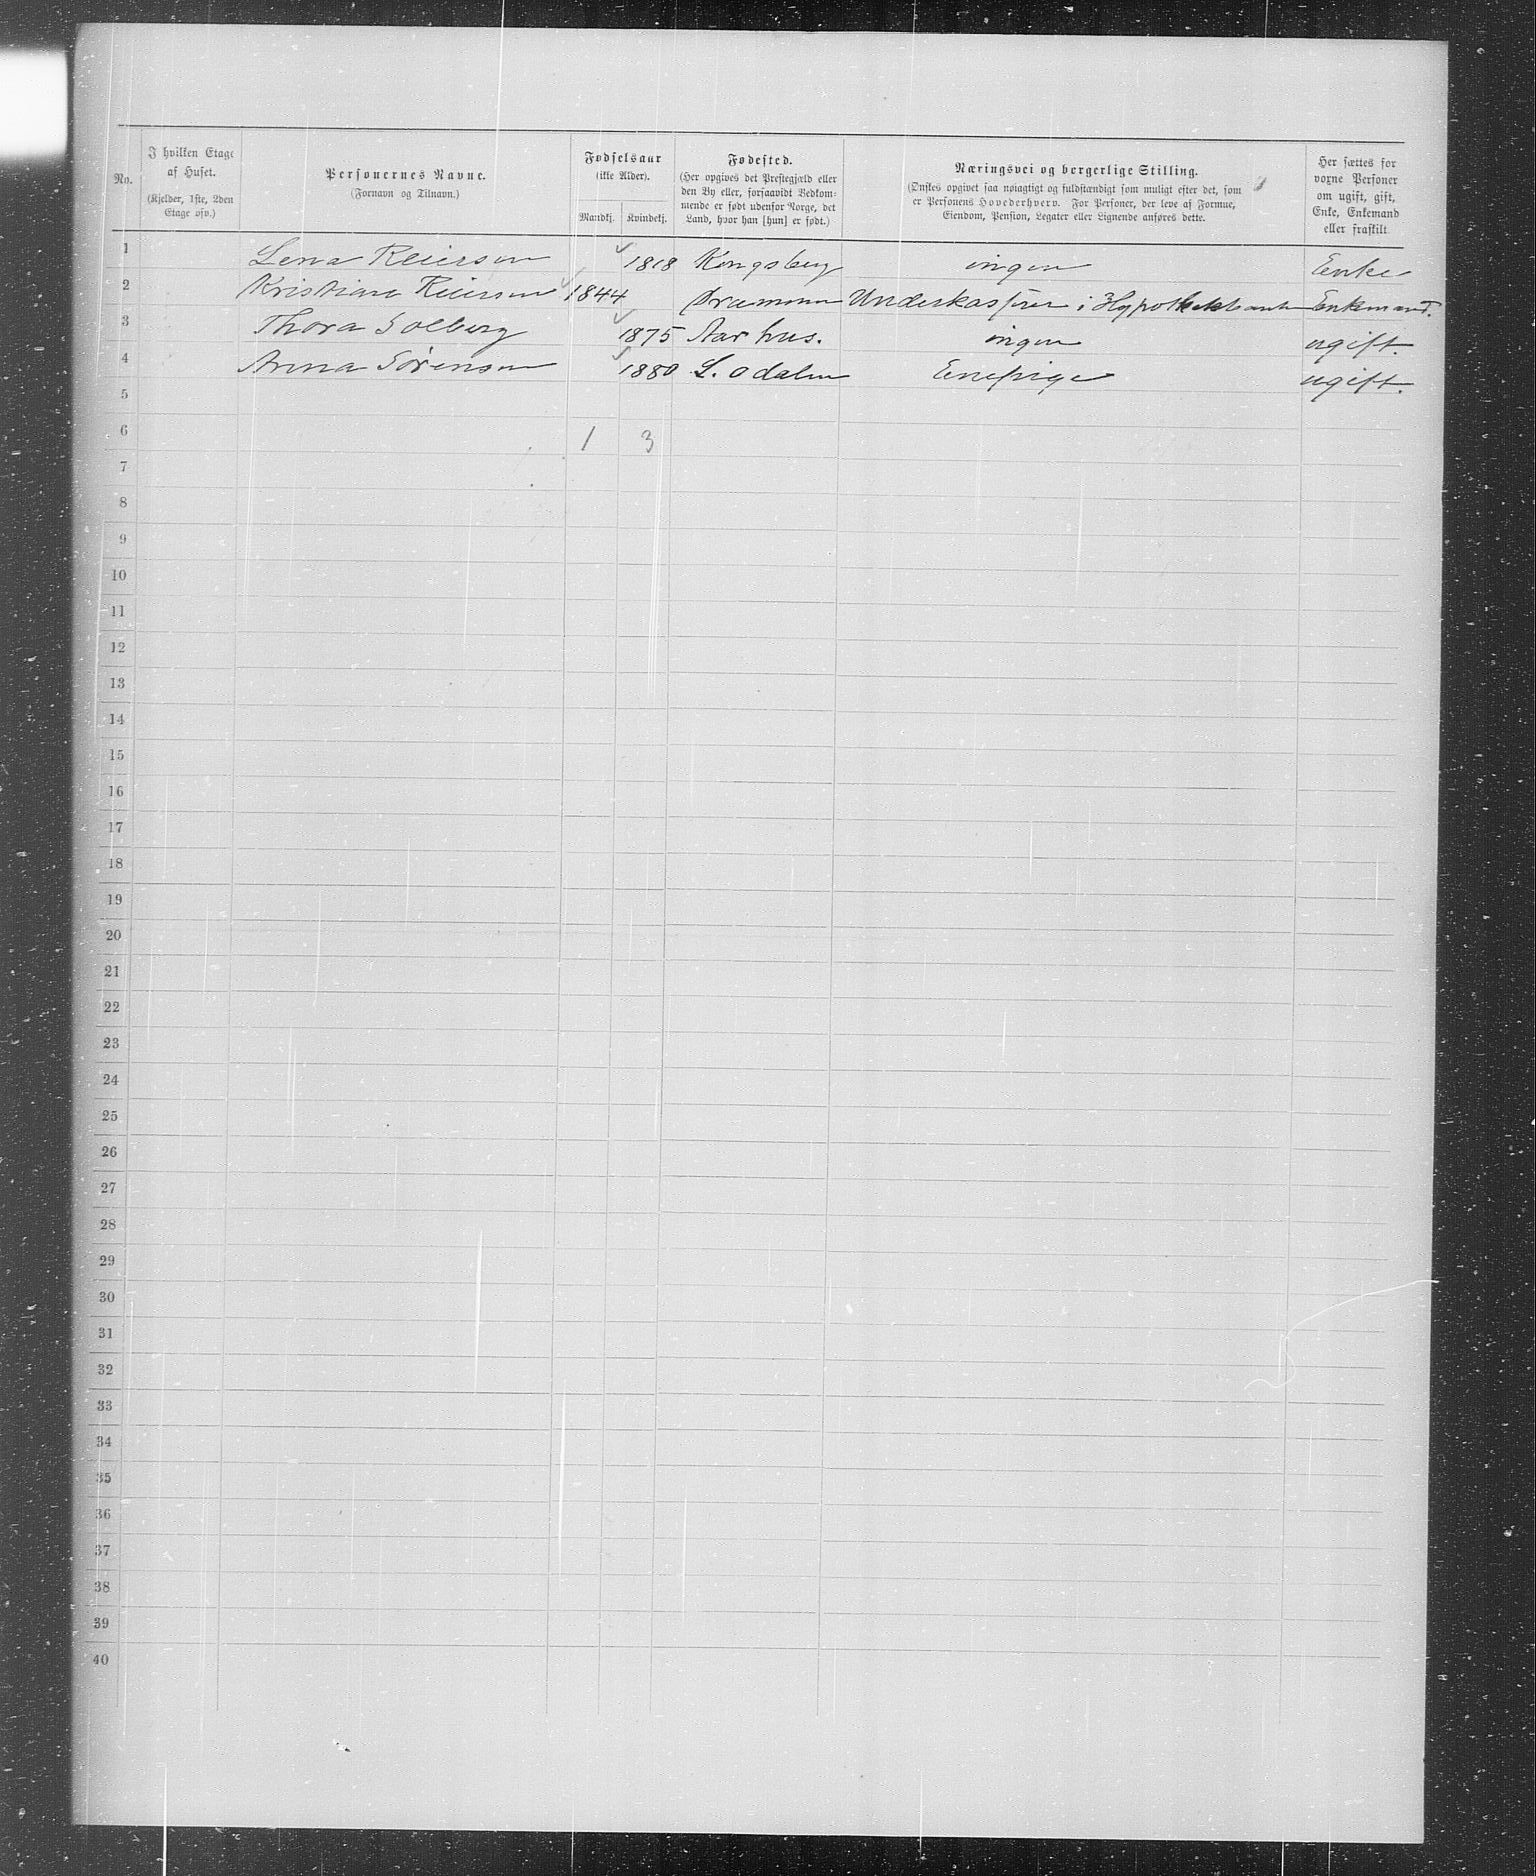 No. I hvilken Etage af Huset. (Kjelder, 1ste, 2den Etage osv.) Personernes Navne. (Fornavn og Tilnavn.) Fødselsaar (ikke Alder). Mandkj. Kvindekj. Fødested. (Her opgives det Prestegjæld eller den By eller, forsaavidt Vedkommende er født udenfor Norge, det Land, hvor han [hun] er født.) Næringsvei og borgerlige Stilling. (Ønskes opgivet saa nøiagtigt og fuldstændigt som muligt efter det, som er Personens Hovederhverv. For Personer, der leve af Formue, Eiendom, Pension, Legater eller Lignende anføres dette. Her sættes for voxne Personer om ugift, gift, Enke, Enkemand eller fraskilt
1 Lena Reiersen 1818 Kongsberg ingen Enke
2 Kristian Reiersen 1844 Drammen Underkasserer i Hypothekbanken Enkemand.
3 Thora Solberg 1875 Aarhus. ingen ugift.
4 Anna Sørensen 1880 S. Odalen Enepige ugift.
5
6 1 3
7
8
9
10
11
12
13
14
15
16
17
18
19
20
21
22
23
24
25
26
27
28
29
30
31
32
33
34
35
36
37
38
39
40